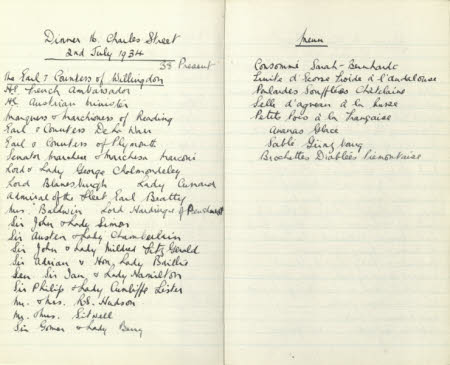 Dinner 16. Charles Street
2nd July 1934
38 Present
The Earl & Countess of Willingdon
H.E. French Ambassador
H.E. Austrian Minister
Marquess & Marchioness of Reading
Earl & Countess De La Warr
Earl & Countess of Plymouth
Senator Marchese & Marchesa Marconi
Lord & Lady George Cholmondeley
Lord Blanesburgh Lady Cunard
Admiral of the Fleet Earl Beatty
Mrs. Baldwin Lord Hardinge of Penshurst
Sir John & Lady Simon
Sir Austen & Lady Chamberlain
Sir John & Lady Mildred Fitz Gerald
Sir Adrian & Hon. Lady Baillie
Gen. Sir Ian & Lady Hamilton
Sir Philip & Lady Cunliffe Lister
Mr. & Mrs. R.S. Hudson
Mr. & Mrs. Sitwell
Sir Gomer & Lady Berry
Menu
Consommé Sarah-Bernhardt
Truite d'Ecosse Froide à l'andalouse
Poulardes Soufflées Châtelaine
Selle d'agneau à la Russe
Petits Pois à la Française
Ananas Glacé
Sablé
Brochettes Diablées Piemontaise